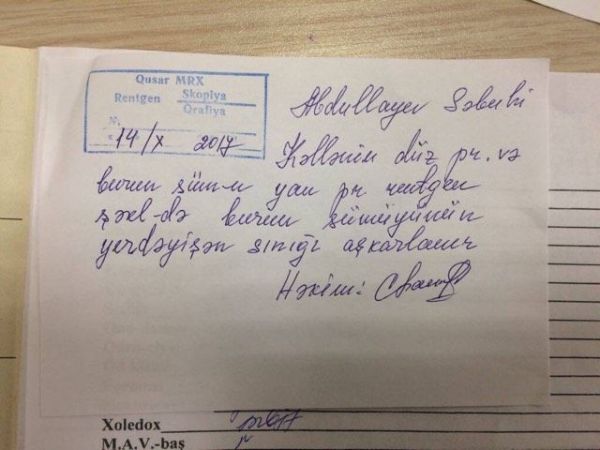 Qusar MRX
Rentgen Skopiya
Qrafiya
№
"14/X 2017
Abdullayev Səbuhi
Kəllənin düz pr. və
burun süm-ü yan pr rentgen
şəkl-də burun sümüyünün
yerdəyişən sınığı aşkarlanır
Həkim:
Xoledox
M.A.V.-baş